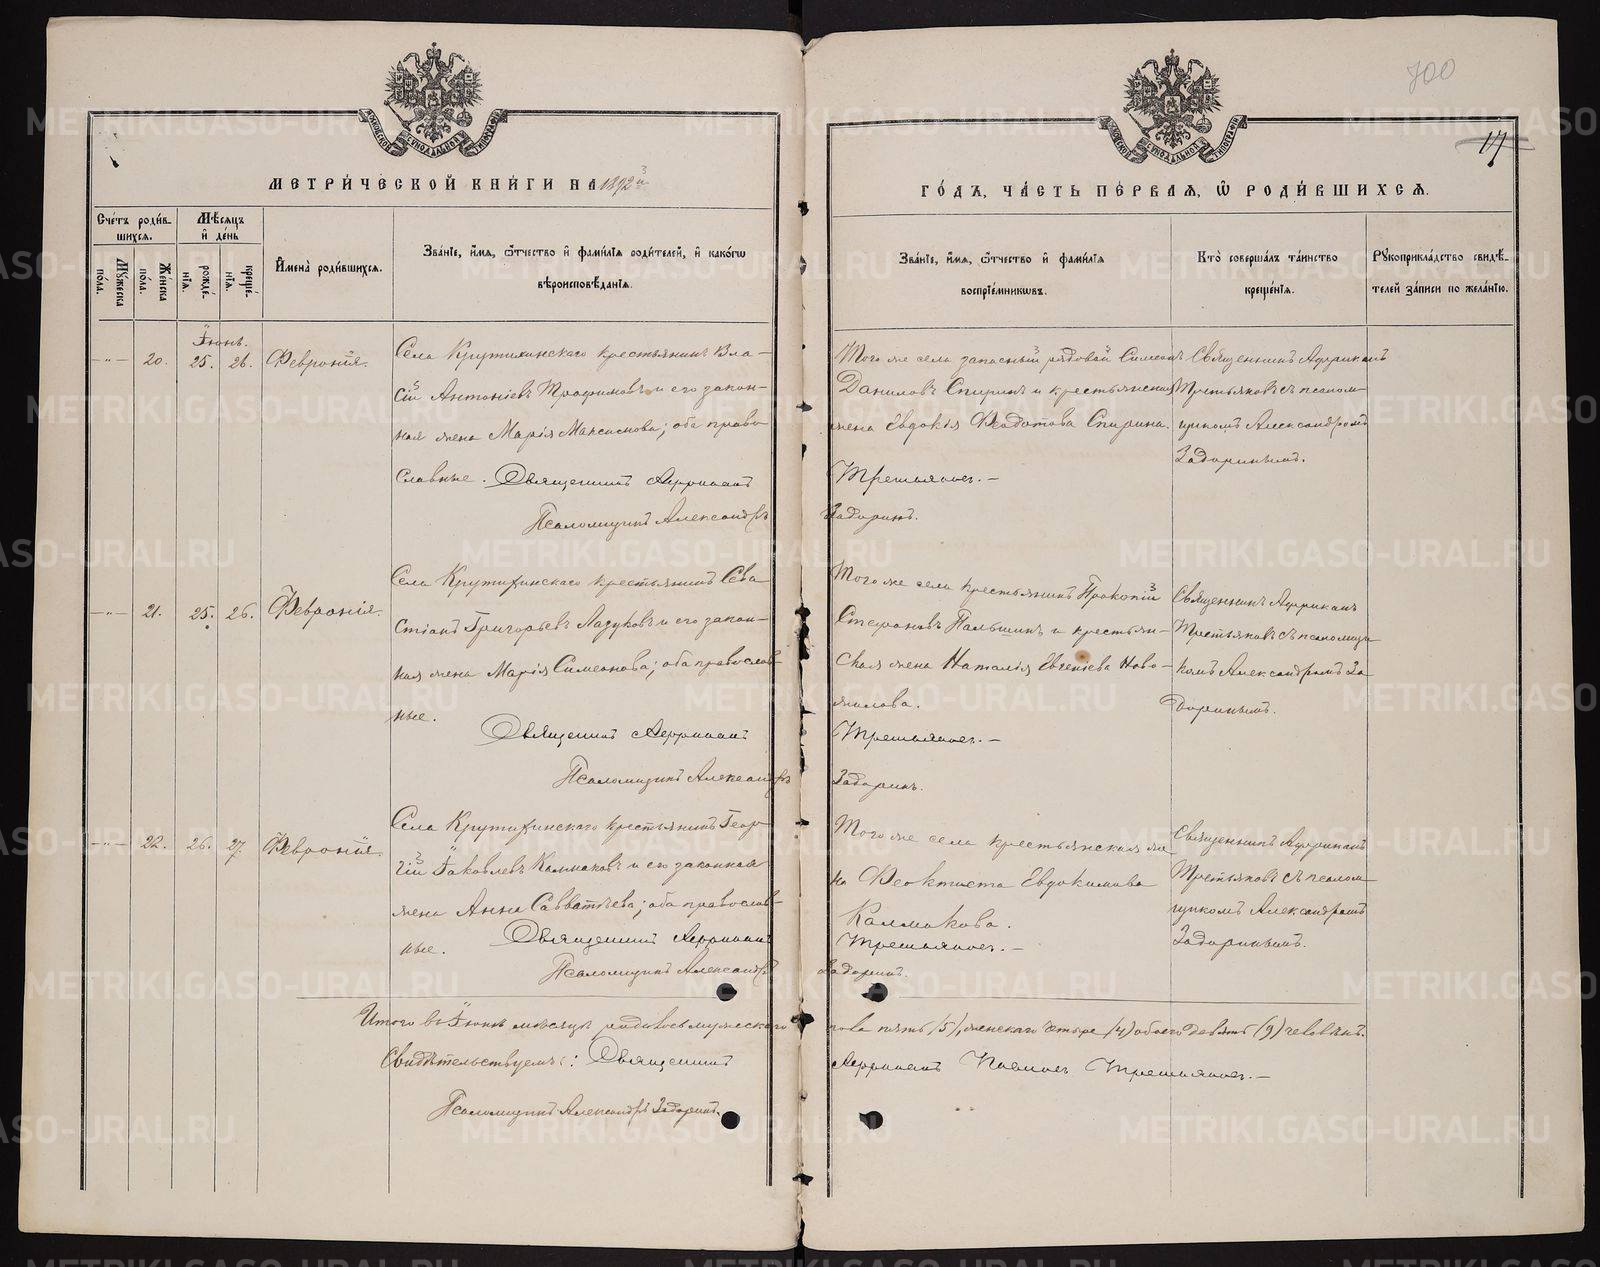 700
17
МОСКОВСКОЙ СѴНОДАЛЬНОЙ ТИПОГРАФІИ
МОСКОВСКОЙ СѴНОДАЛЬНОЙ ТИПОГРАФІИ
МЕТРИ́ЧЕСКОЙ КНИ́ГИ НА 1892й
ГО́ДЪ, ЧА́СТЬ ПЕ́РВАЯ, Ѡ РОДИ́ВШИХСЯ.
Сче́тъ роди́в-
шихся.
Мѣ́сяцъ
и де́нь
Му́жеска
по́ла.
Же́нска
по́ла.
рожде́-
нїя.
креще́-
нїя.
И҆мена̀ роди́вшихся.
Зва́нїе, и҆́мя, ѻ҆́тчество и҆ фами́лїя роди́телей, и҆ како́гѡ
вѣроисповѣ́данїя.
Зва́нїе, и҆́мя, ѻ҆́тчество и҆ фами́лїя
воспрїе́мникѡвъ.
Кто̀ соверша́лъ та́инство
креще́нїя.
Рꙋкоприкла́дство свидѣ́-
телей за́писи по жела́нїю.
Іюнь.
—„— 20. 25. 26. Феврония.
Села Крутихинскаго крестьянинъ Вла-
сій Антоніевъ Трофимовъ и его закон-
ная жена Марія Максимова; оба право-
славные. Священникъ Африканъ
Псаломщикъ Александръ
Того же села запасный рядовой Симеонъ
Даниловъ Спиринъ и крестьянская
жена Евдокія Феодотова Спирина.
Третьяковъ.—
Задоринъ.
Священникъ Африканъ
Третьяковъ съ псалом-
щикомъ Александромъ
Задоринымъ.
—„— 21. 25. 26. Февронія.
Села Крутихинскаго крестьянинъ Сева-
стіанъ Григорьевъ Ладуковъ и его закон-
ная жена Марія Симеонова; оба православ-
ные.
Священникъ Африканъ
Псаломщикъ Александръ
Того же села крестьянинъ Прокопій
Стефановъ Пальшинъ и крестьян-
ская жена Наталія Евгеніева Ново-
жилова.
Третьяковъ.—
Задоринъ.
Священникъ Африканъ
Третьяковъ съ псаломщи-
комъ Александромъ За-
доринымъ.
—„— 22. 26. 27. Феврония.
Села Крутихинскаго крестьянинъ Геор-
гій Іаковлевъ Калмаковъ и его законная
жена Анна Савватѣева; оба православ-
ные. Священникъ Африканъ
Псаломщикъ Александръ
Того же села крестьянская же-
на Феоктиста Евдокимова
Калмакова.
Третьяковъ.—
Задоринъ.
Священникъ Африканъ
Третьяковъ съ псалом-
щикомъ Александромъ
Задоринымъ.
Итого въ Іюнѣ мѣсяцѣ родилось мужескаго
пола пять (5), женскаго четыре (4) обоего девять (9) человѣкъ.
Свидѣтельствуемъ: Священникъ
Африканъ Павловъ Третьяковъ.—
Псаломщикъ Александръ Задоринъ.
METRIKI.GASO-URAL.RU